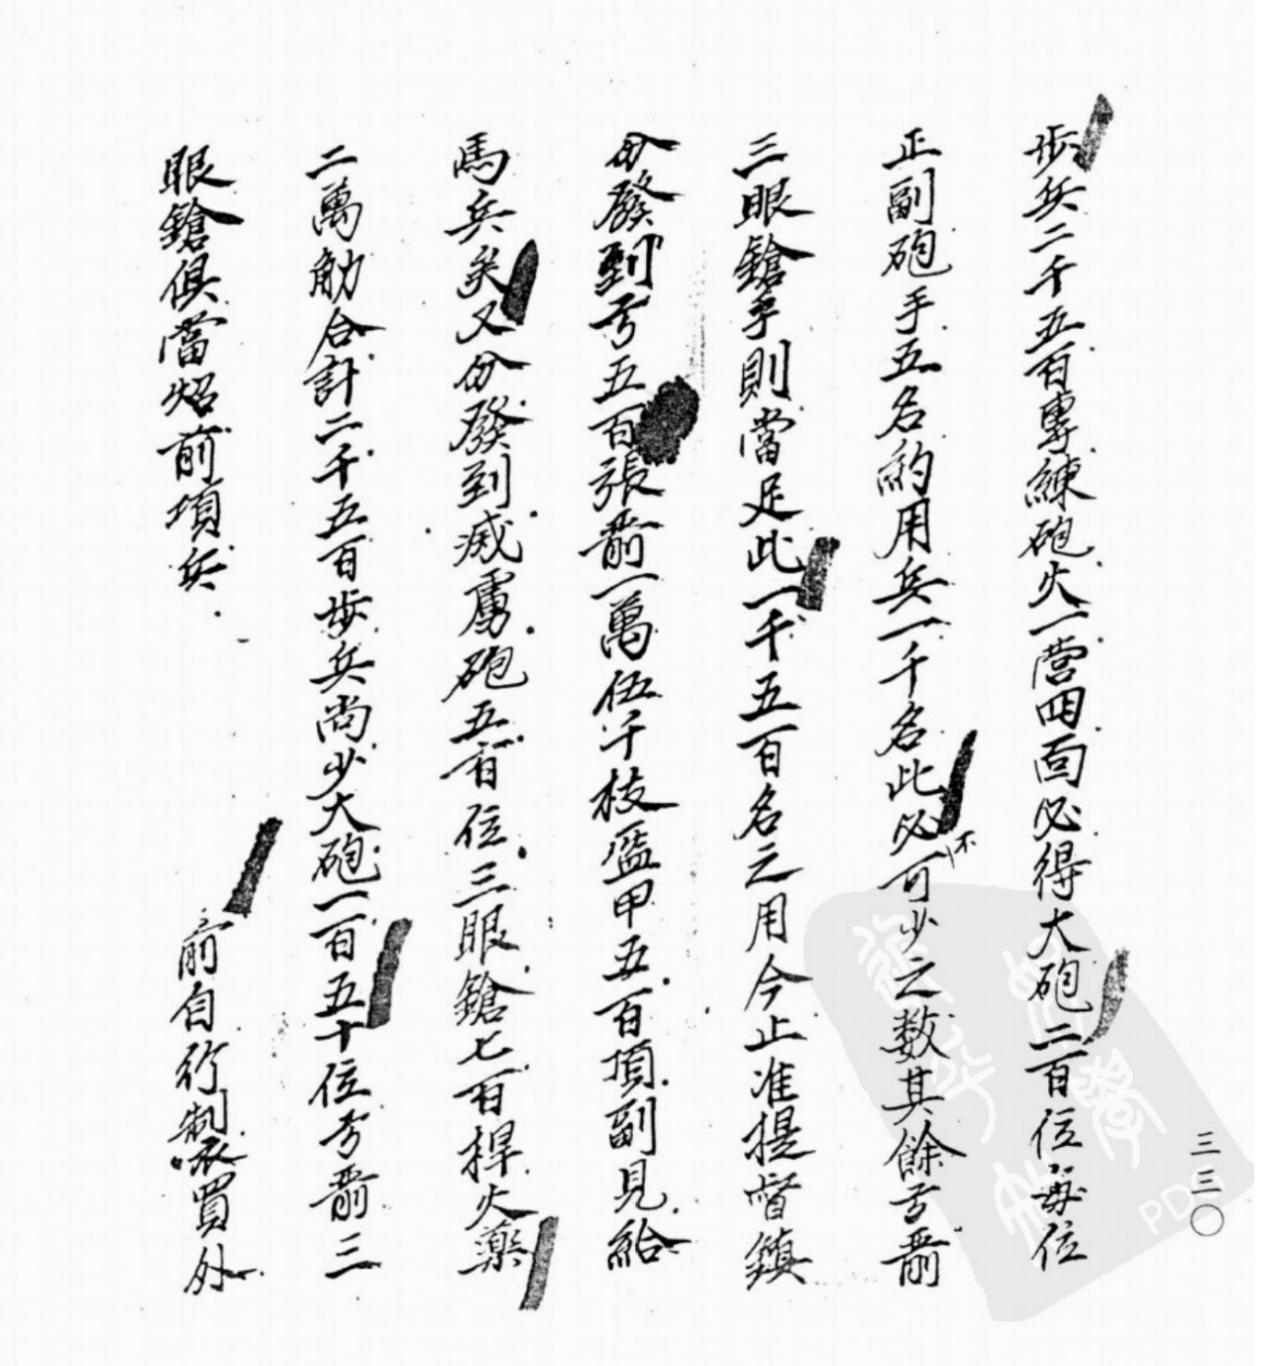 步兵二千五百專練砲火一營四面必得大砲二百位每位
正副砲手五名約用兵一千名此必不可少之数其餘弓箭
三眼鎗手則當足此一千五百名之用今止准提督鎮
分發到弓五百張箭一萬伍千枝盔甲五百頂副見給
馬兵矣又分發到滅虜砲五百位三眼鎗七百桿火藥
二萬觔合計二千五百步兵尚少大砲一百五十位弓箭三
眼鎗俱當炤前項兵
前自行制買外
三三〇